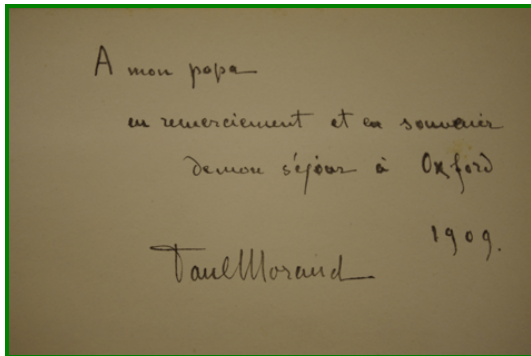 A mon papa
en remerciement et en souvenir
de mon séjour à Oxford
1909.
Paul Morand